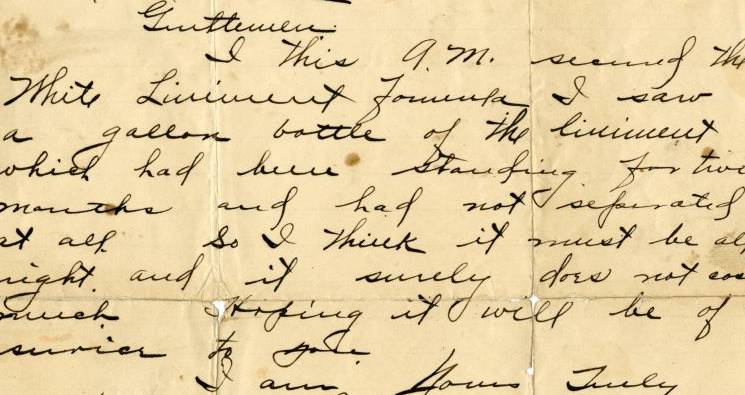 Gentlemen:
I this A.M. secured the
White Liniment Formula I saw
a gallon bottle of the liniment
which had been standing for two
months and had not seperated
at all. So I think it must be all
right. and it surely does not cos
much. Hoping it will be of
service to you.
I am Yours Truly